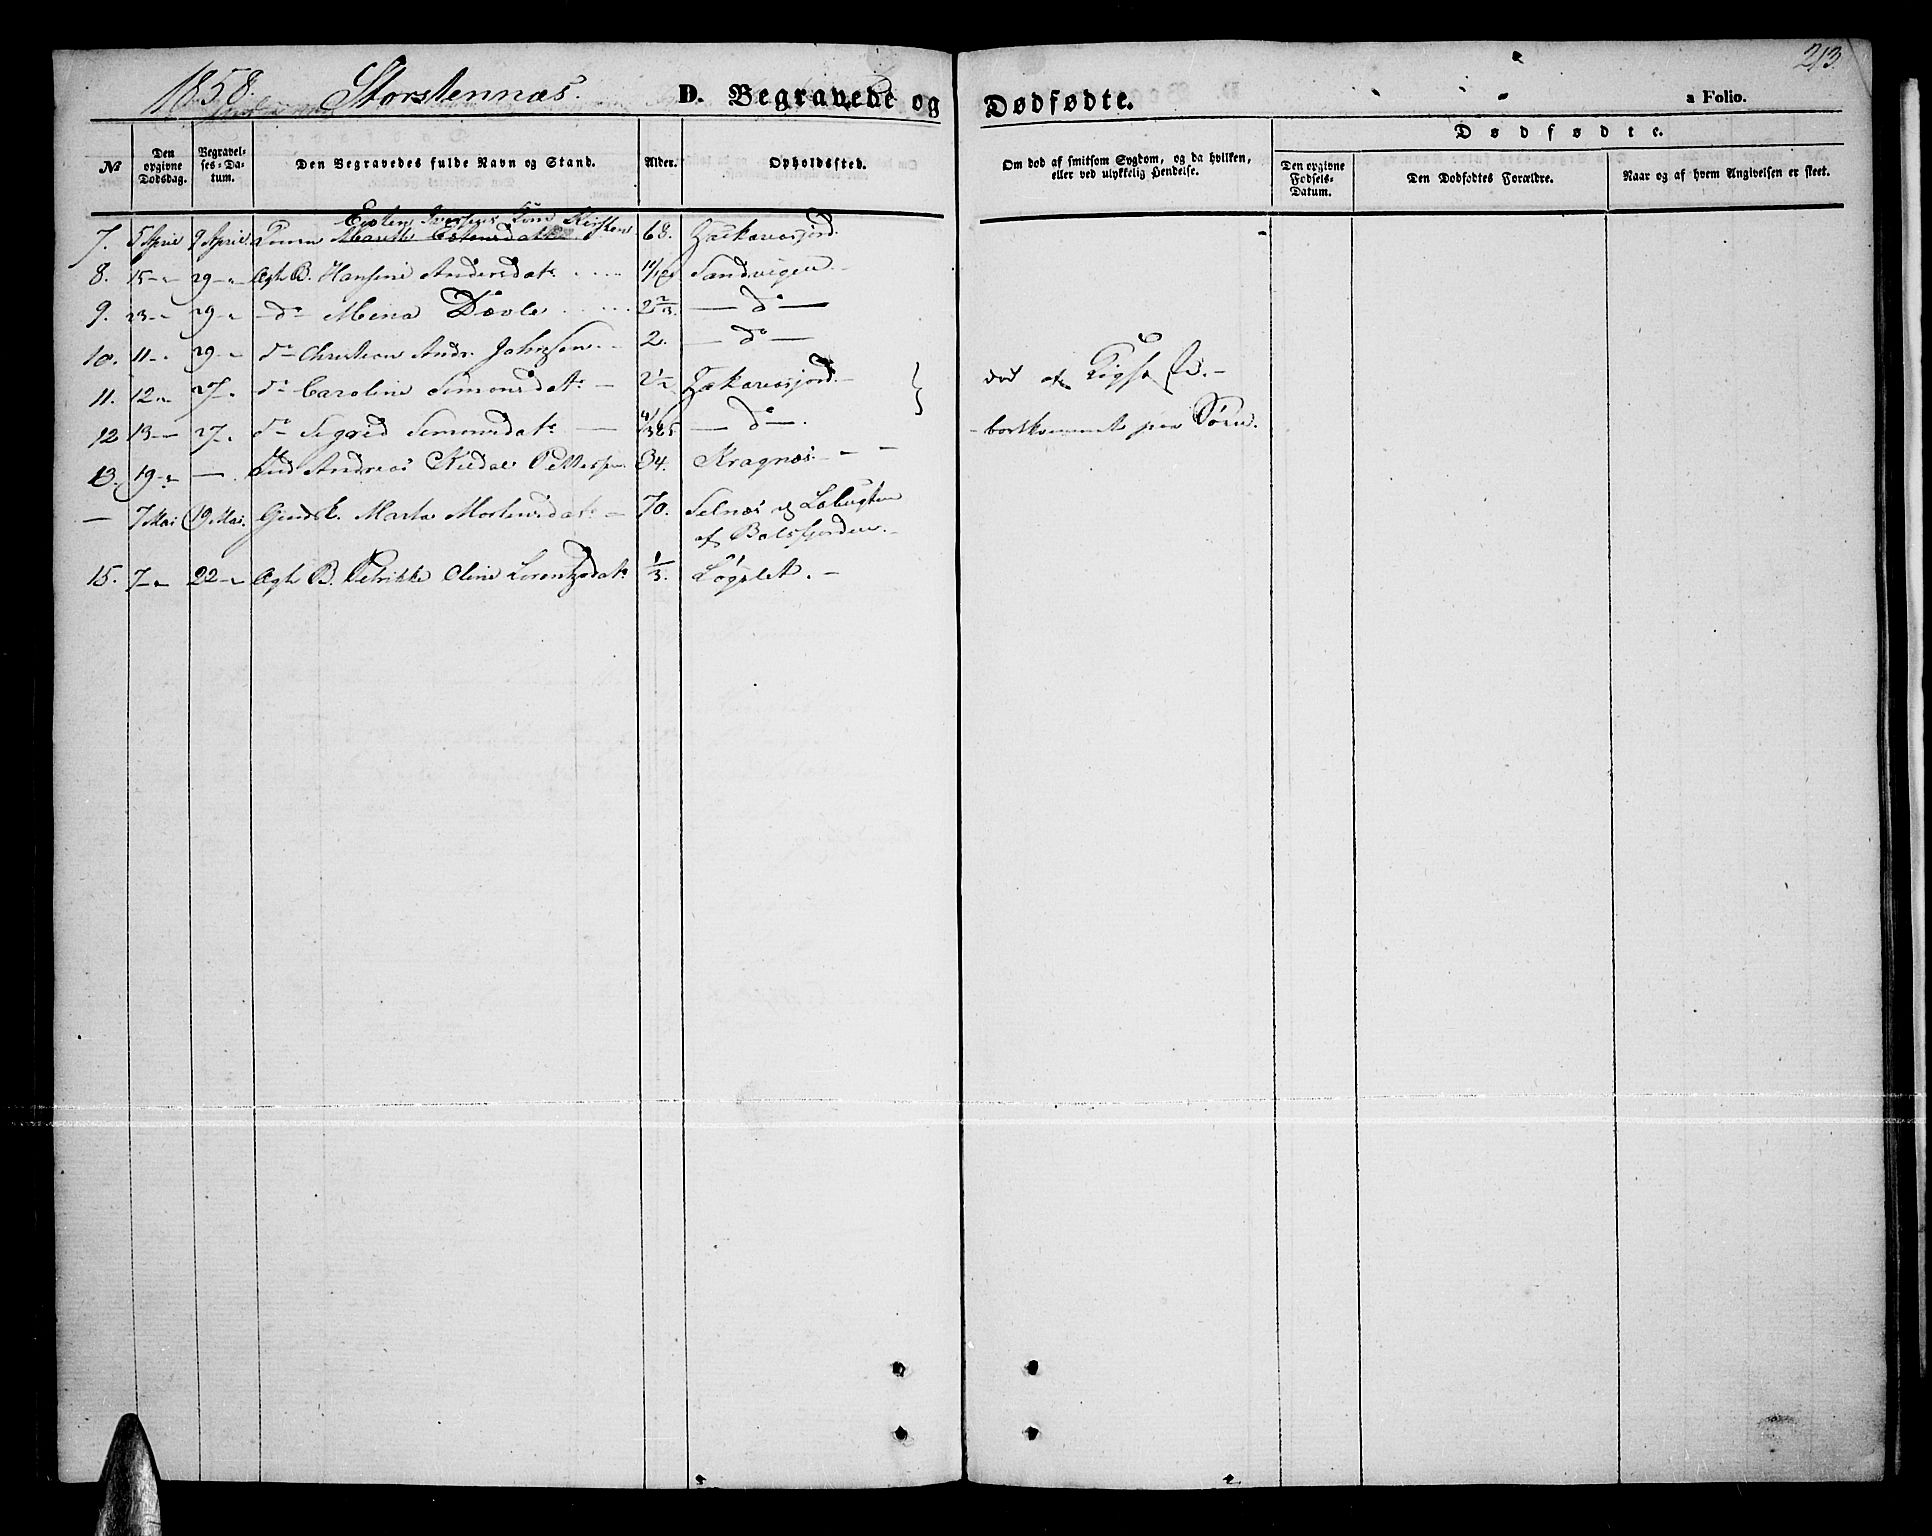 1858. Storstennæs. D. Begravede og Dødfødte. 213.
a Folio.
№ Den opgivne Dødsdag. Begravelses-Datum. Den Begravedes fulde Navn og Stand. Alder. Opholdssted. Om død af smitsom Sygdom, og da hvilken, eller ved ulykkelig Hendelse. Dødfødte. Den opgivne Fødsels-Datum. Den Dødfødtes Forældre. Naar og af hvem Angivelsen er skeet.
Eisten Iversens Kone Kirsten
7. 5 April 9 April Marith Estensdatt 68.
8. 15 – " 29 – " Ægte B. Hansine Andersdatr 11/12 Sandvigen. –
9. 23 – " 29 – " – do Mina Dævle 2 2/3. – do –
10. 11 – " 29 – " do Christian Andr. Johnsen. – 2. – do –
11. 12 – " 27. " do Caroline Simonsdatr – 2 1/2 død af
12 13 – " 27. " do Sigrid Simonsdatr – – do –. bortkommet paa Søen.
13. 19 – " – . Andreas Kildal Pettersen 34. Kragnæs. – – –
– 7 Mai 19 Mai. Marta Mortensdatr – 70. Selnæs
af Balsfjorden. –
15. 7 – " 22 – " Ægte B. Petrikke Oline Lorentzdatr 1/3. Løgslet. –